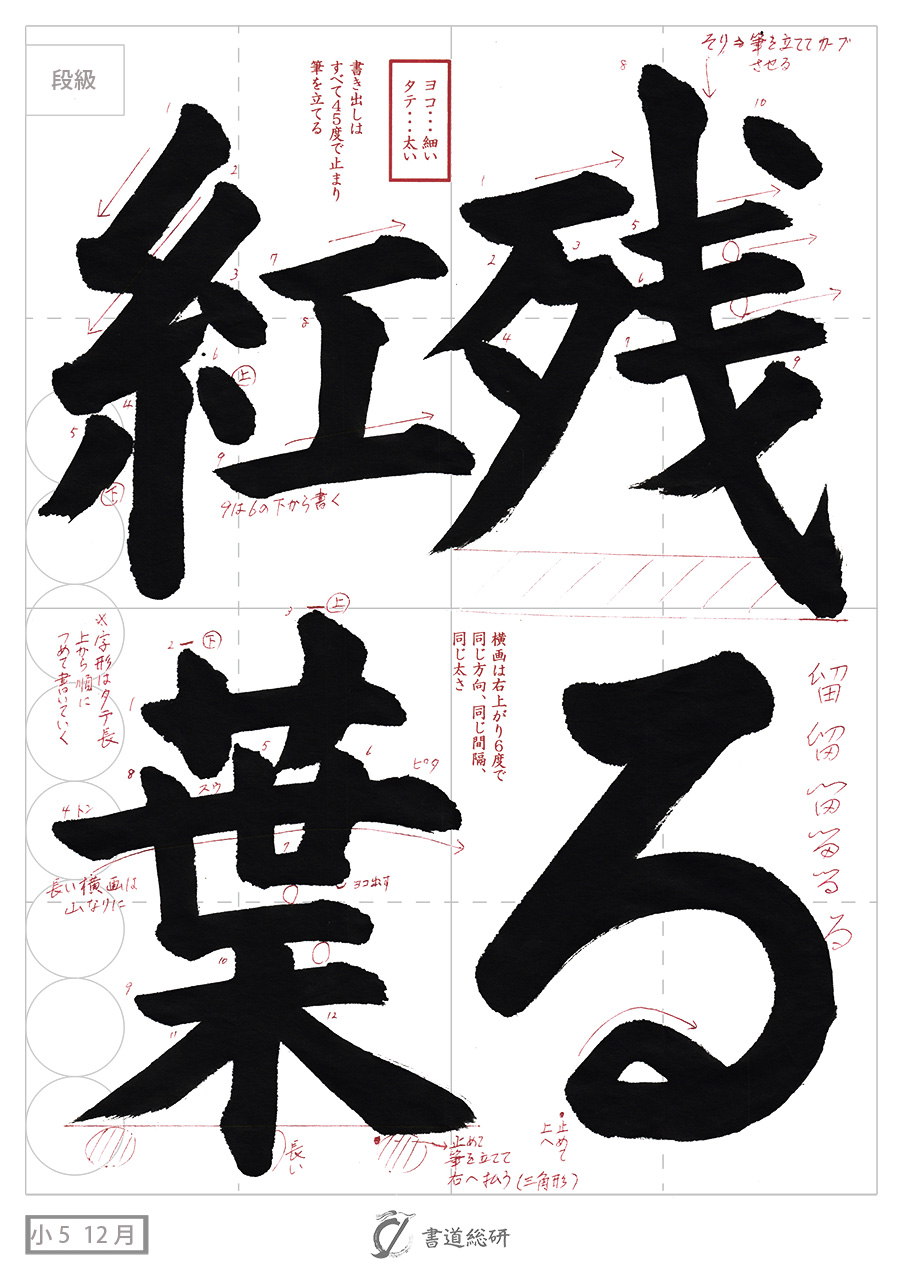 段級
残る
紅葉
そり⇒筆を立ててカーブ
させる
ヨコ・・・細い
タテ・・・太い
書き出しは
すべて45度で止まり
筆を立てる
1
2
3
4
5
6
7
8
9
10
1
2
3
4
5
6
7
8
9
上
下
9は6の下から書く
横画は右上がり6度で
同じ方向、同じ間隔、
同じ太さ
留
る
※字形はタテ長
上から順に
つめて書いていく
1
2
下
3
上
4トン
スウ
ピタ
5
6
7
8
9
10
11
12
ヨコ出す
長い横画は
山なりに
長い
止めて
筆を立てて
右へ払う(三角形)
止めて
上へ
小5 12月
書道総研